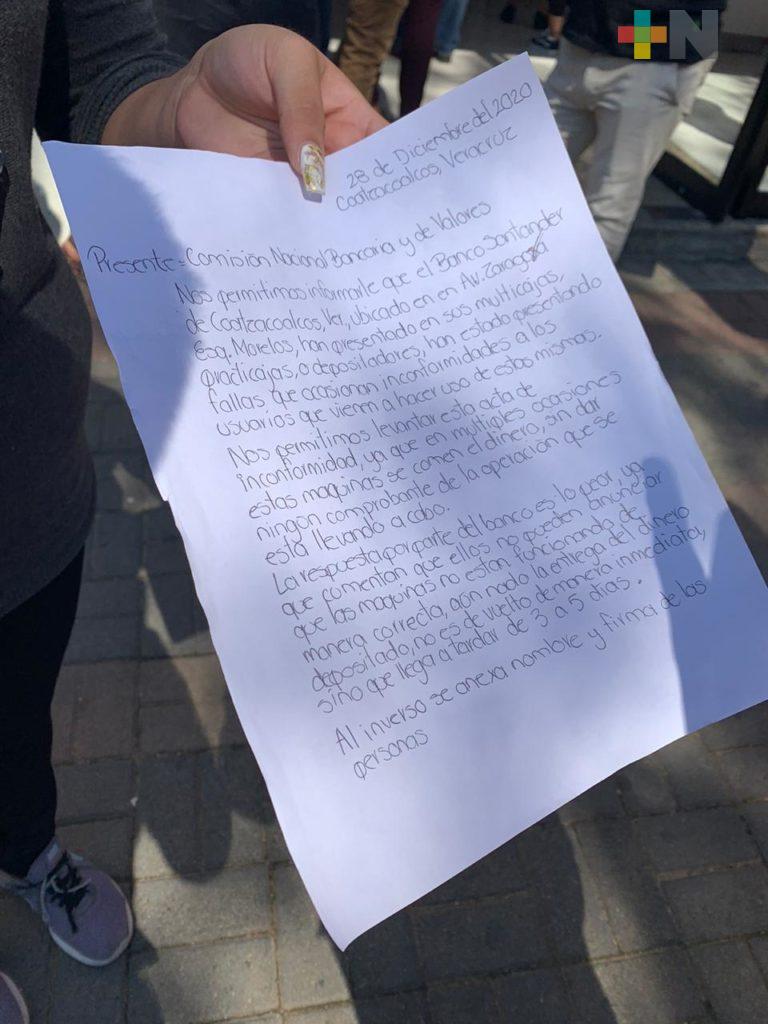 +N
28 de Diciembre del 2020
Coatzacoalcos, Veracruz
Presente = Comisión Nacional Bancaria y de Valores
Nos permitimos informarle que el Banco Santander
de Coatzacoalcos, Ver, ubicado en en Av. Zaragoza
Esq. Morelos, han presentado en sus multicajas,
practicajas, o depositadores, han estado presentando
fallas que ocasionan inconformidades a los
usuarios que vienen a hacer uso de estas mismas.
Nos permitimos levantar esta acta de
inconformidad, ya que en multiples ocasiones
estas maquinas se comen el dinero, sin dar
ningún comprobante de la operación que se
está llevando a cabo.
La respuesta por parte del banco es lo peor, ya
que comentan que ellos no pueden anunciar
que las maquinas no estan funcionando de
manera correcta, aún nado la entrega del dinero
depositado, no es de vuelto de manera inmediata,
sino que llega a tardar de 3 a 5 días.
Al inverso se anexa nombre y firma de las
personas